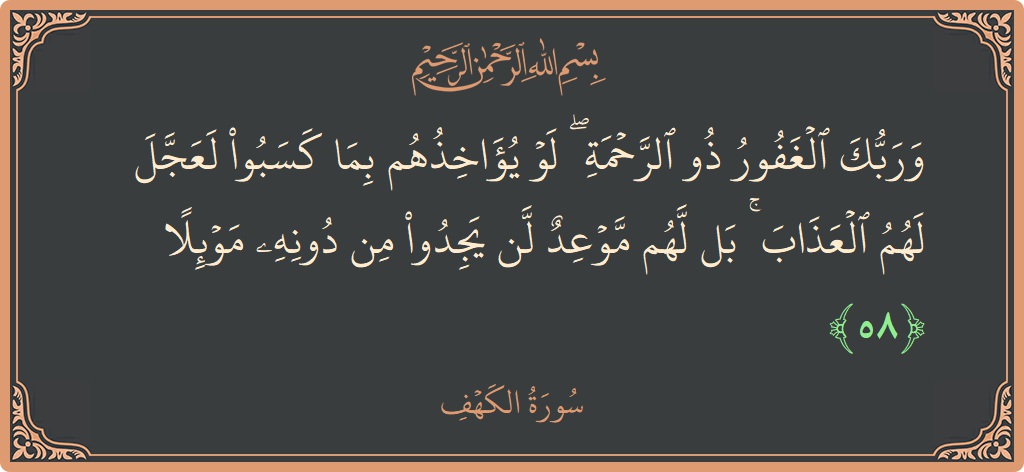 بِسْمِ اللهِ الرَّحْمٰنِ الرَّحِيْمِ
وَرَبُّكَ ٱلْغَفُورُ ذُو ٱلرَّحْمَةِ ۖ لَوْ يُؤَاخِذُهُم بِمَا كَسَبُوا۟ لَعَجَّلَ
لَهُمُ ٱلْعَذَابَ ۚ بَل لَّهُم مَّوْعِدٌ لَّن يَجِدُوا۟ مِن دُونِهِۦ مَوْئِلًا
﴿٥٨﴾
سُورَةُ الكَهْفِ